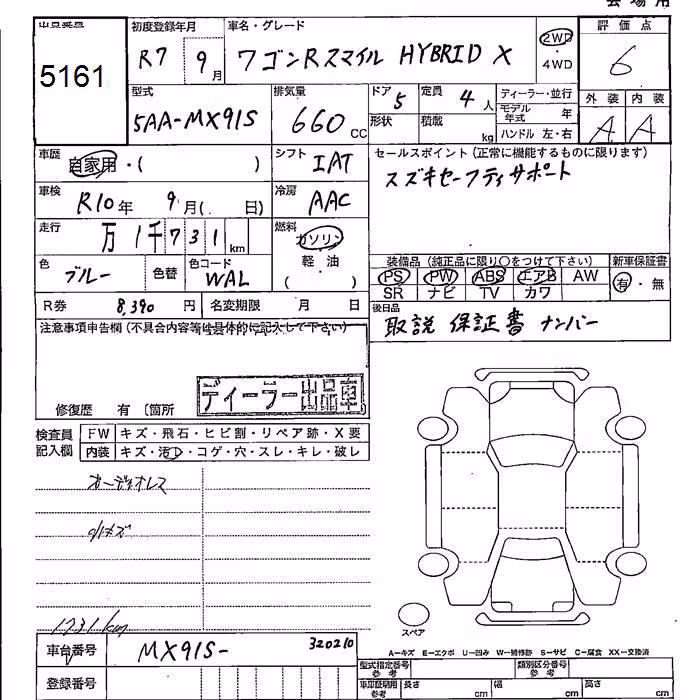 会場用
出品番号
5161
初度登録年月
R7 9月
車名・グレード
ワゴンRスマイル HYBRID X
2WD
4WD
評価点
6
型式
5AA-MX91S
排気量
660 CC
ドア 5
形状
定員 4人
積載 kg
ディーラー・並行
モデル年式 年
ハンドル 左・右
外装 内装
A A
車歴
自家用・( )
シフト IAT
セールスポイント(正常に機能するものに限ります)
スズキセーフティサポート
車検
R10年 9月( 日)
冷房 AAC
走行
万1千731km
燃料
ガソリン
軽・油
( )
色
ブルー
色替
色コード
WAL
装備品(純正品に限り○をつけて下さい)
新車保証書
PS PW ABS エアB AW
SR ナビ TV カワ
有・無
R券 8,390円
名変期限 月 日
後日品
取説 保証書 ナンバー
注意事項申告欄(不具合内容等は具体的に記入して下さい)
ディーラー出品車
修復歴 有 〔箇所
検査員記入欄
FW キズ・飛石・ヒビ割・リペア跡・X要
内装 キズ・汚レ・コゲ・穴・スレ・キレ・破レ
オーディオレス
小キズ
1731km
スペア
A-キズ E-エクボ U-凹み W-補修跡 S-サビ C-腐食 XX-交換済
車台番号
MX91S- 320210
登録番号
型式指定番号
参考
類別区分番号
参考
車庫証明用
参考
長さ cm
幅 cm
高さ cm